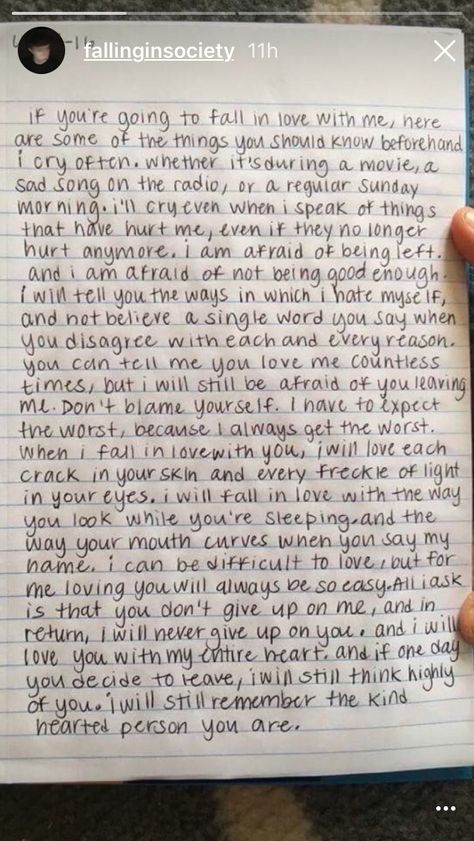 fallinginsociety 11h
if you're going to fall in love with me, here
are some of the things you should know beforehand
i cry often. whether it's during a movie, a
sad song on the radio, or a regular sunday
morning. i'll cry even when i speak of things
that have hurt me, even if they no longer
hurt anymore. i am afraid of being left.
and i am afraid of not being good enough.
i will tell you the ways in which i hate myself,
and not believe a single word you say when
you disagree with each and every reason.
you can tell me you love me countless
times, but i will still be afraid of you leaving
me. Don't blame yourself. I have to expect
the worst, because I always get the worst.
when i fall in love with you, i will love each
crack in your skin and every freckle of light
in your eyes. i will fall in love with the way
you look while you're sleeping. and the
way your mouth curves when you say my
name. i can be difficult to love, but for
me loving you will always be so easy. All i ask
is that you don't give up on me, and in
return, i will never give up on you. and i will
love you with my entire heart. and if one day
you decide to leave, i will still think highly
of you. i will still remember the kind
hearted person you are.